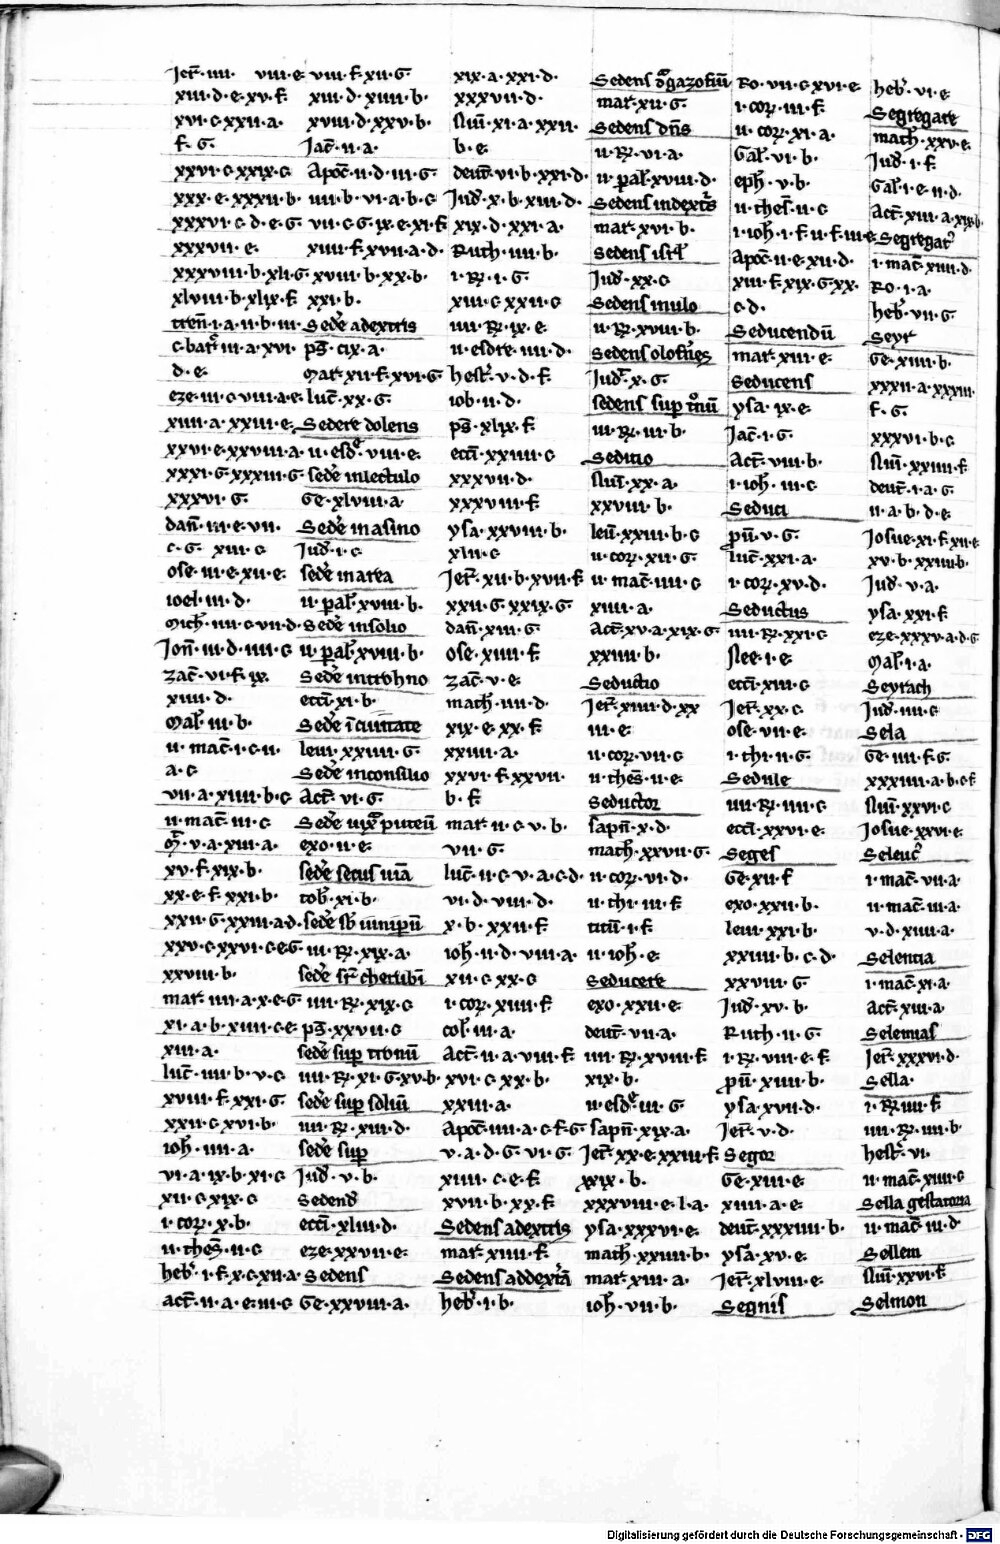 Jer̄·iiii· viii·e·
xiii·d·e·xv·f·
xvi·c·xxii·a·
f·G·
xxvi·c·xxix·c·
xxx·e·xxxii·b·
xxxvi·c·d·e·G·
xxxvii·e·
xxxviii·b·xli·G·
xlviii·b·xlix·f·
tren̄·i·a·ii·b·iii·
c·bar̄·iii·a·xvi·
d·e·
eze·iii·c·viii·a·e·
xiiii·a·xxiii·e·
xxvi·e·xxviii·a·
xxxi·G·xxxiii·G·
xxxvi·G·
dan̄·iii·e·vii·
c·G· xiii·c·
ose·iii·e·xii·e·
ioel·iii·d·
Mich̄·iiii·c·vii·d·
Jon̄·iii·d·iiii·c·
zac̄·vi·f·ix·
xiiii·d·
Mal̄·iii·b·
ii·mac̄·i·c·ii·
a·c·
vii·a·xiiii·b·c·
ii·mac̄·iii·c·
v·a·xiii·a·
xv·f·xix·b·
xx·e·f·xxi·b·
xxii·G·xxiii·a·d·
xxv·c·xxvi·c·e·G·
xxviii·b·
mar̄·iiii·a·x·e·G·
xi·a·b·xiiii·c·e·
xiii·a·
luc̄·iiii·b·v·c·
xviii·f·xxi·G·
xxii·c·xxvi·b·
ioh̄·iiii·a·
vi·a·ix·b·xi·c·
xii·c·xix·c·
i·cor̄·x·b·
ii·thes̄·ii·c·
heb̄·i·f·x·c·xii·a·
act̄·ii·a·e·iii·c·
viii·f·xii·G·
xiii·d·xiiii·b·
xviii·d·xxv·b·
Jac̄·ii·a·
Apoc̄·ii·d·iii·G·
iiii·b·vi·a·b·c·
vii·c·G·ix·e·xi·f·
xiiii·f·xvii·a·d·
xviii·b·xx·b·
xxi·b·
Sedēe adextris
ps̄·cix·a·
Mar̄·xii·f·xvi·G·
luc̄·xx·G·
Sedere dolens
ii·esd̄·viii·e·
sedēe inlectulo
Ge·xlviii·a·
Sedēe in asino
Jud̄·i·c·
sedēe in area
ii·pal̄·xviii·b·
Sedēe insolio
ii·pal̄·xviii·b·
Sedēe introhno
ecci̅·xi·b·
Sedēe ī ciuitate
leui·xxiiii·G·
Sedēe inconsilio
Act̄·vi·G·
Sedēe iuxᵃ puteū
exo·ii·e·
sedēe secus uiā
tob̄·xi·b·
sedēe sb̄ iunip̄ū
iii·R̄·xix·a·
sedēe sr̄ cherubī
iiii·R̄·xix·c·
ps̄·xxvii·c·
sedēe sup tronū
iiii·R̄·xi·G·xv·b·
sedēe sup soliū
iiii·R̄·xiii·d·
sedēe sup
Jud̄·v·b·
Sedend̄
ecci̅·xliii·d·
eze·xxvii·e·
Sedens
Ge·xxviii·a·
xix·a·xxi·d·
xxxvii·d·
Nūi·xi·a·xxii·
b·e·
deut̄·vi·b·xxi·d·
Jud̄·x·b·xiii·d·
xix·d·xxi·a·
Ruth·iiii·b·
i·R̄·i·G·
xiii·c·xxii·c·
iiii·R̄·ix·e·
ii·esdre·iiii·d·
hest̄·v·d·f·
iob·ii·d·
ps̄·xlix·f·
ecci̅·xxiiii·c·
xxxvii·d·
xxxviii·f·
ysa·xxviii·b·
xlii·c·
Jer̄·xii·b·xvii·f·
xxii·G·xxix·G·
dan̄·xiii·G·
ose·xiiii·f·
zac̄·v·e·
math̄·iiii·d·
xix·e·xx·f·
xxiiii·a·
xxvi·f·xxvii·
b·f·
mar̄·ii·c·v·b·
vii·G·
luc̄·ii·c·v·a·c·d·
vi·d·viii·d·
x·b·xxii·f·
ioh̄·ii·d·viii·a·
xii·c·xx·c·
i·cor̄·xiiii·f·
col̄·iii·a·
Act̄·ii·a·viii·f·
xvi·c·xx·b·
xxiii·a·
Apoc̄·iiii·a·c·f·G·
v·a·d·G·vi·G·
xiiii·c·e·f·
xvii·b·xx·f·
Sedens adextris
mar̄·xiiii·f·
Sedens addextrā
heb̄·i·b·
Sedens ᵃgazofiū
mar̄·xii·G·
Sedens dn̄s
ii·R̄·vi·a·
ii·pal̄·xviii·d·
Sedens indextris
mar̄·xvi·b·
Sedens isrl̄
Jud̄·xx·c·
Sedens inulo
ii·R̄·xviii·b·
Sedens olofnes
Jud̄·x·G·
sedens sup tnū
iii·R̄·iii·b·
Seditio
Nūi·xx·a·
xxviii·b·
leui̅·xxiii·b·c·
ii·cor̄·xii·G·
ii·mac̄·iiii·c·
xiiii·a·
Act̄·xv·a·xix·G·
xxiiii·b·
Seductio
Jer̄·xiiii·d·xx·
iii·e·
ii·cor̄·vii·c·
ii·thes̄·ii·e·
Seductor
sapn̄·x·d·
math̄·xxvii·G·
ii·cor̄·vi·d·
ii·thi·iii·f·
titū·i·f·
ii·ioh̄·e·
Seducere
exo·xxii·e·
deut̄·vii·a·
iiii·R̄·xviii·f·
xix·b·
ii·esd̄·iii·G·
sapn̄·xix·a·
Jer̄·xx·e·xxiii·f·
xxix·b·
xxxviii·e·l·a·
ysa·xxxvi·e·
math̄·xxiiii·b·
mar̄·xiii·a·
ioh̄·vii·b·
Ro·vii·c·xvi·e·
i·cor̄·iii·f·
ii·cor̄·xi·a·
Gal̄·vi·b·
eph̄·v·b·
ii·thes̄·ii·c·
i·ioh̄·i·f·ii·f·iii·e·
Apoc̄·ii·e·xii·d·
xiii·f·xix·G·xx·
c·d·
Seducendū
mar̄·xiii·e·
Seducens
ysa·ix·e·
Jac̄·i·G·
Act̄·viii·b·
i·ioh̄·iii·c·
Seduci
pū·v·G·
luc̄·xxi·a·
i·cor̄·xv·d·
Seductus
iiii·R̄·xxi·c·
Nee·i·e·
ecci̅·xiii·c·
Jer̄·xx·c·
ose·vii·e·
i·thi·ii·G·
Sedule
iiii·R̄·iiii·c·
ecci̅·xxvi·e·
Seges
Ge·xii·f·
exo·xxii·b·
leui·xxi·b·
xxiiii·b·c·d·
xxviii·G·
Jud̄·xv·b·
Ruth·ii·G·
i·R̄·viii·e·f·
pū·xiiii·b·
ysa·xvii·d·
Jer̄·v·d·
Segor
Ge·xiii·e·
xiiii·a·e·
deut̄·xxxiiii·b·
ysa·xv·e·
Jer̄·xlviii·e·
Segnis
heb̄·vi·e·
Segregare
math̄·xxv·e·
Jud̄·i·f·
Gal̄·i·e·ii·d·
Act̄·xiii·a·xix·b·
Segregar̄
i·mac̄·xiiii·d·
Ro·i·a·
heb̄·vii·G·
Seyr
Ge·xiiii·b·
xxxii·a·xxxiii·
f·G·
xxxvi·b·c·
Nūi·xxiiii·f·
deut̄·i·a·G·
ii·a·b·d·e·
Josue·xi·f·xii·e·
xv·b·xxiiii·b·
Jud̄·v·a·
ysa·xxi·f·
eze·xxxv·a·d·G·
Mal̄·i·a·
Seyrach
Jud̄·iii·c·
Sela
Ge·iiii·f·G·
xxxiiii·a·b·c·f·
Nūi·xxvi·c·
Josue·xxvi·e·
Seleuc̄
i·mac̄·vii·a·
ii·mac̄·iii·a·
v·d·xiiii·a·
Selencia
i·mac̄·xi·a·
act̄·xiii·a·
Selemias
Jer̄·xxxvi·d·
Sella·
i·R̄·iiii·f·
iiii·R̄·iiii·b·
hest̄·vi·
ii·mac̄·xiiii·c·
Sella gestatoria
ii·mac̄·iii·d·
Sellem
Nūi·xxvi·f·
Selmon
Digitalisierung gefördert durch die Deutsche Forschungsgemeinschaft - DFG